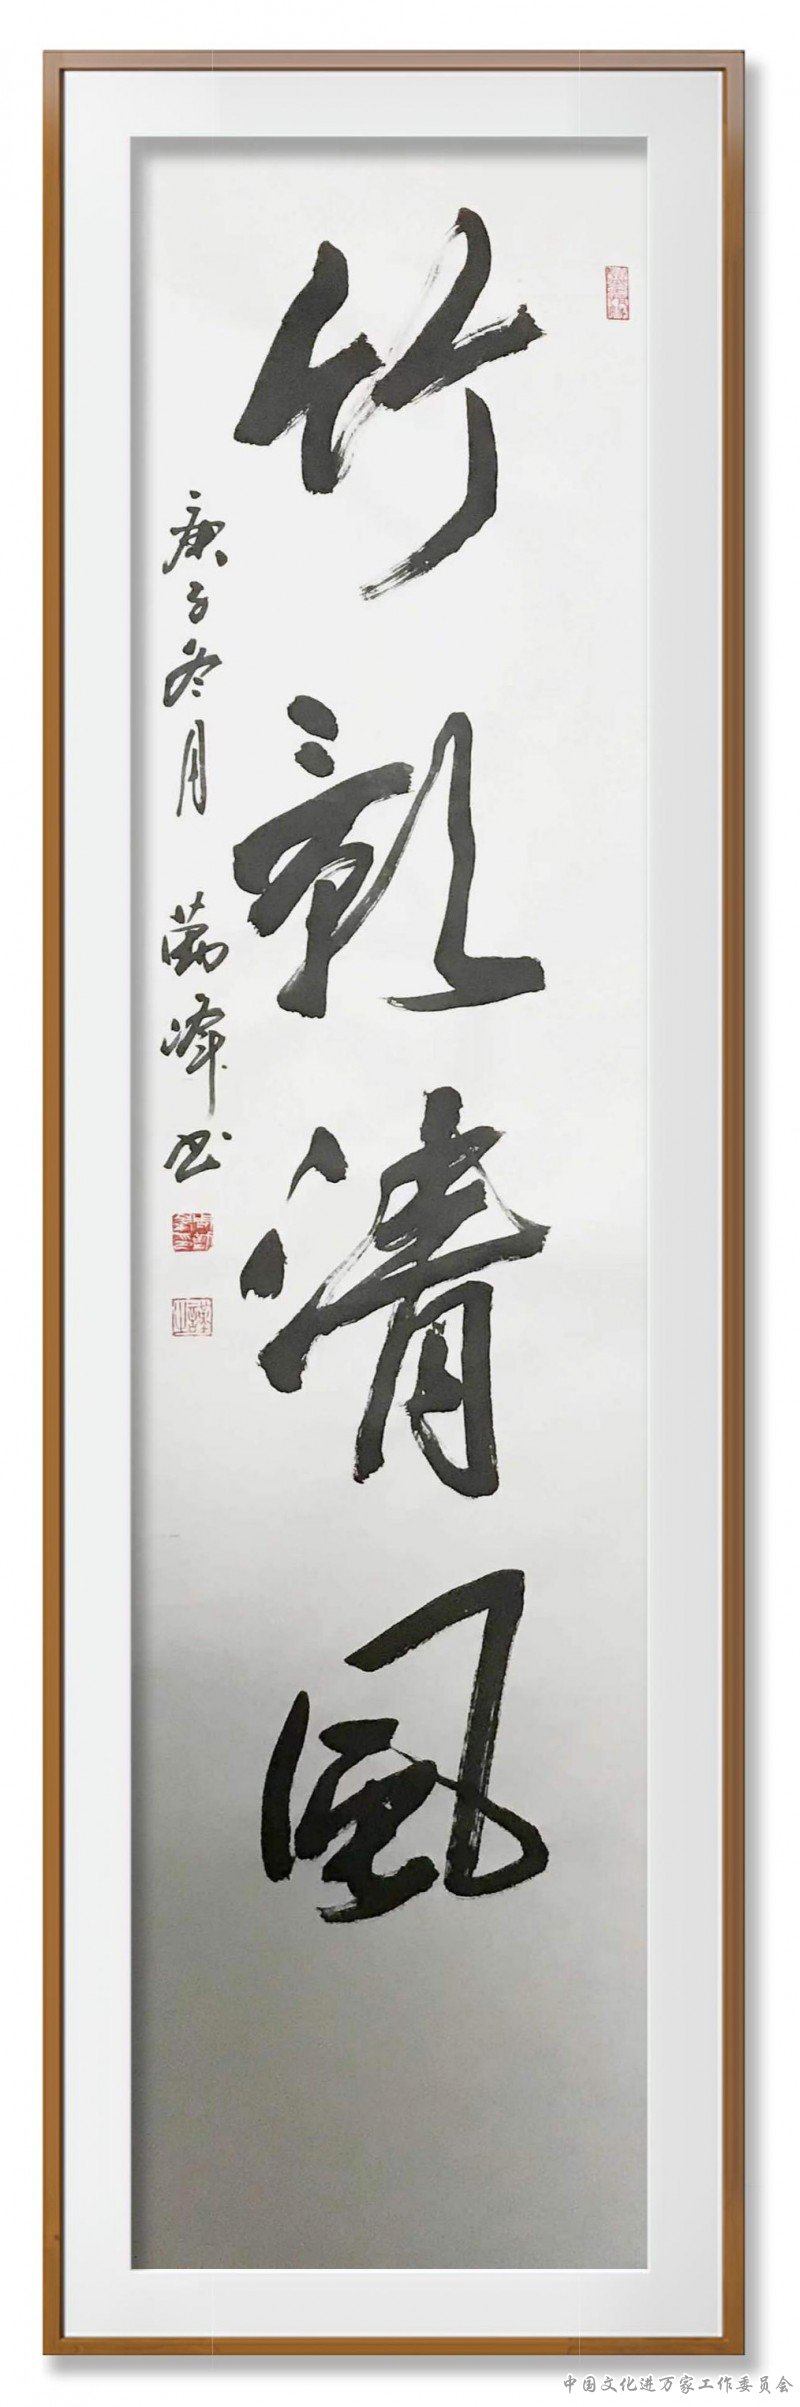 竹影清風
庚子冬月 峰书
中国文化进万家工作委员会